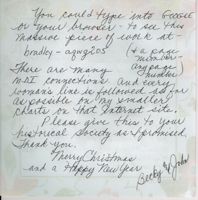 You could type into GOOGLE
or your browser - to see this
massive piece of work at -
bradley -
(& a page
number -
any page
number)
There are many
connections and every
woman's line is followed as far
as possible on my smaller
charts on that Internet site.
Please give this to your
historical Society as I promised.
Thank you.
Merry Christmas
and a Happy New Year
Becky & John